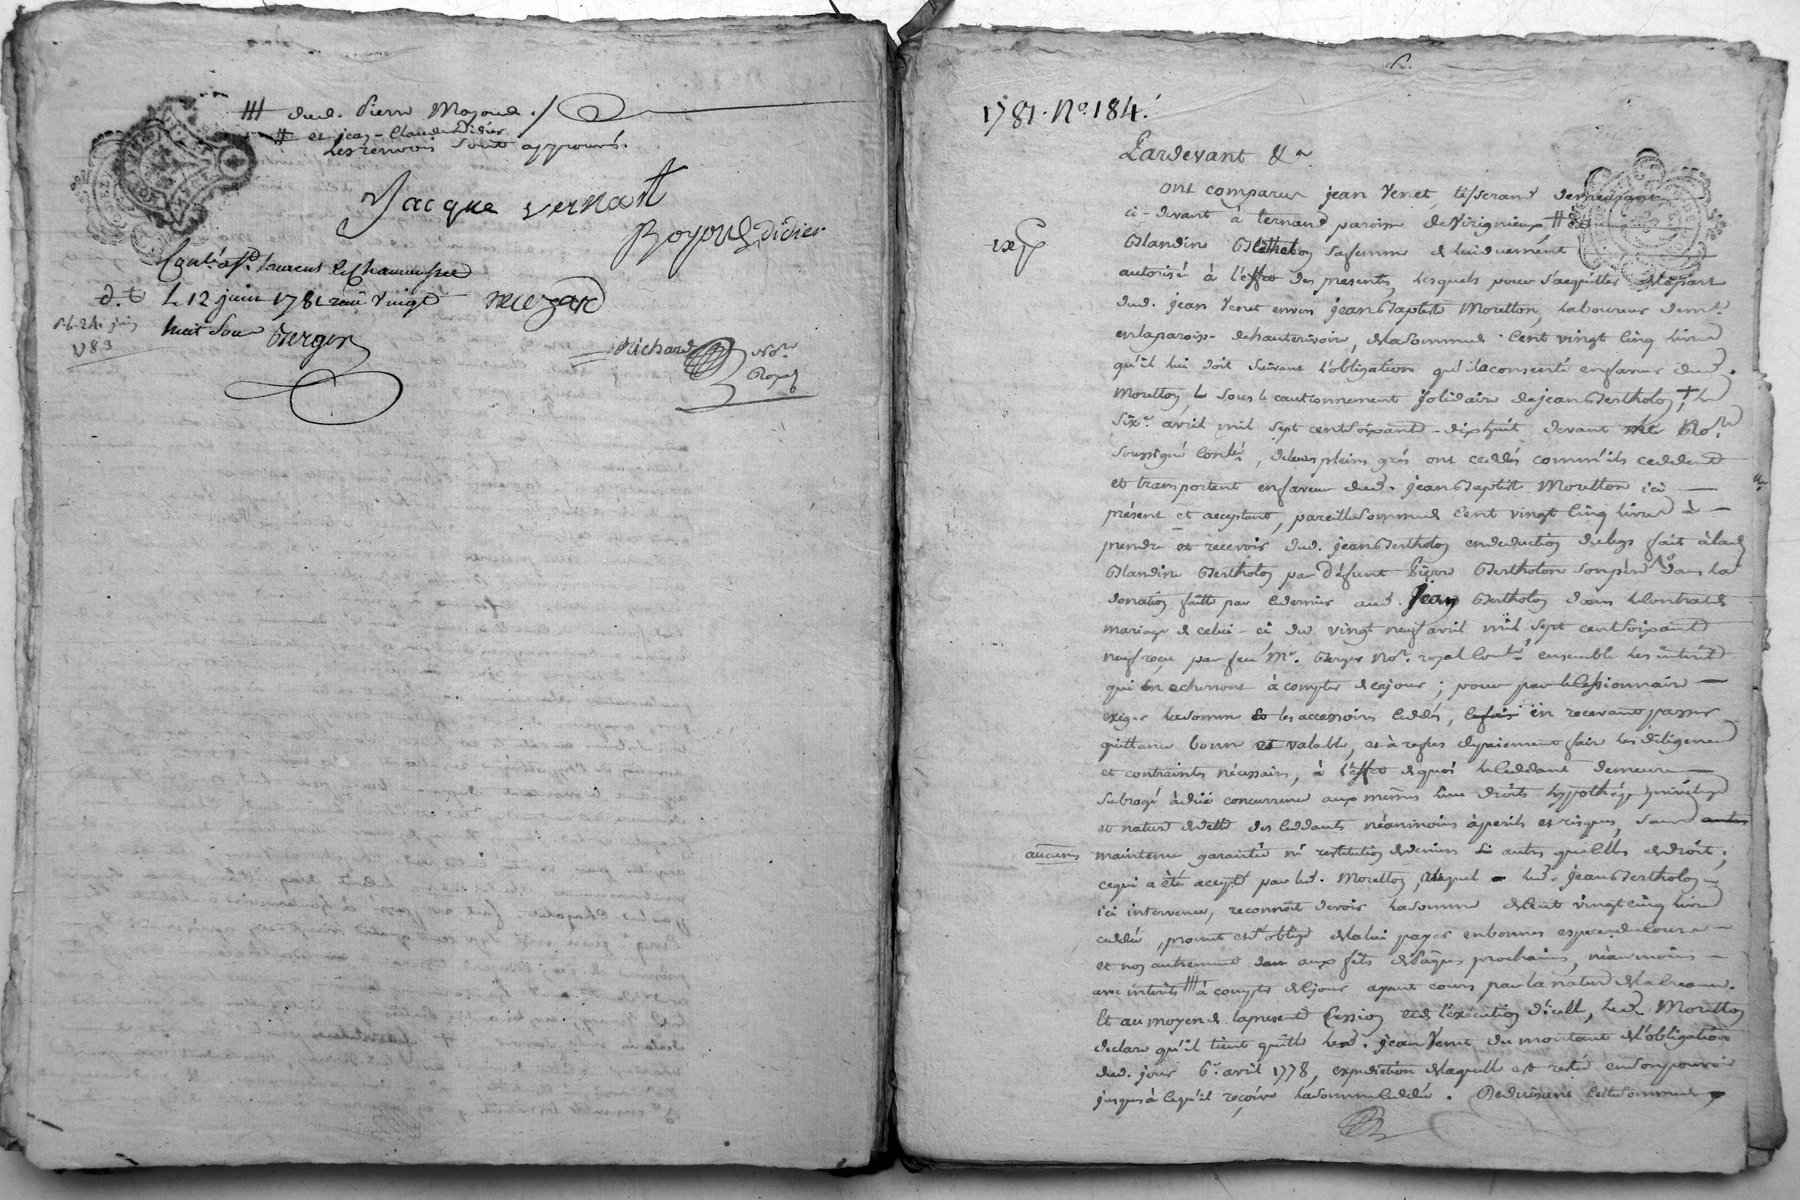 dud. Pierre Mayoud ./
et jean-Claude Didier
Les renvois sont approuvés.
Jacque vernat
Boyoud didier
Conté à St. laurent de Chamousset
d. t. Le 12 juin 1781 reçu vingt
huit sous Berger
mezard
Richard Nore
Royal
1781. No. 184.
Pardevant &a
ont comparus jean Venet, tisserand demeurant
ci-devant à ternand paroisse de Virignieux # et
Blandine Bertholon sa femme de lui duement
autorisée à l'effet des presentes, lesquels pour s'acquitter de la part
dud. jean Venet envers jean Baptiste Morellon, laboureur demt.
en la paroisse de hauterivoire, de la somme de Cent vingt Cinq livres
qu'il lui doit suivant l'obligation qu'il a consenti en faveur dud.
Morellon, sous le cautionnement solidaire de jean Bertholon, † le
six. avril mil sept cent soixante-dix huit devant Nore
soussigné , de leurs pleins grés ont ceddés comm'ils ceddent
et transportent en faveur dud. jean Baptiste Morellon ici
présent et acceptant, pareille somme de Cent vingt Cinq livres à
prendre et recevoir dud. jean Bertholon en deduction du legs fait à lad.
Blandine Bertholon par défunt Pierre Bertholon son père dans la
donation faitte par ce dernier aud. Jean Bertholon dans le Contrat de
mariage de celui-ci du vingt neuf avril mil sept cent soixante
neuf reçu par feu Me. Berger Nore. royal ensemble les intérêts
qui en echerront à compter de ce jour ; pour par le Cessionnaire
exiger la somme et les accessoires Ceddés, en recevant passer
quittance bonne et valable, et à refus de paiement faire les diligences
et contraintes nécessaires, à l'effet de quoi le Ceddant demeure
subrogé à düe concurrence aux mêmes lieu droits hypothéque privilege
et nature de dette des Ceddants néanmoins à perils et risques, sans
aucunes maintenue garantie ni restitution de deniers autres que celles de droit ;
ce qui a été accepté par led. Morellon, auquel led. jean Bertholon
ici intervenu, reconnoît devoir la somme de Cent vingt cinq livres
ceddée, promet et s'oblige de la lui payer en bonnes especes de Cours
et non autrement aux fêtes de Pâques prochaines, néanmoins
avec intérêts à compter de ce jour ayant cours par la nature de la creance.
Et au moyen de la presente Cession et de l'exécution d'icelle, led. Morellon
declare qu'il tient quitte led. jean Venet du montant de l'obligation
dud. jour 6e. avril 1778, expedition de laquelle est restée en son pouvoir
jusques à ce qu'il reçoive la somme Ceddée. Deduisant cette somme de